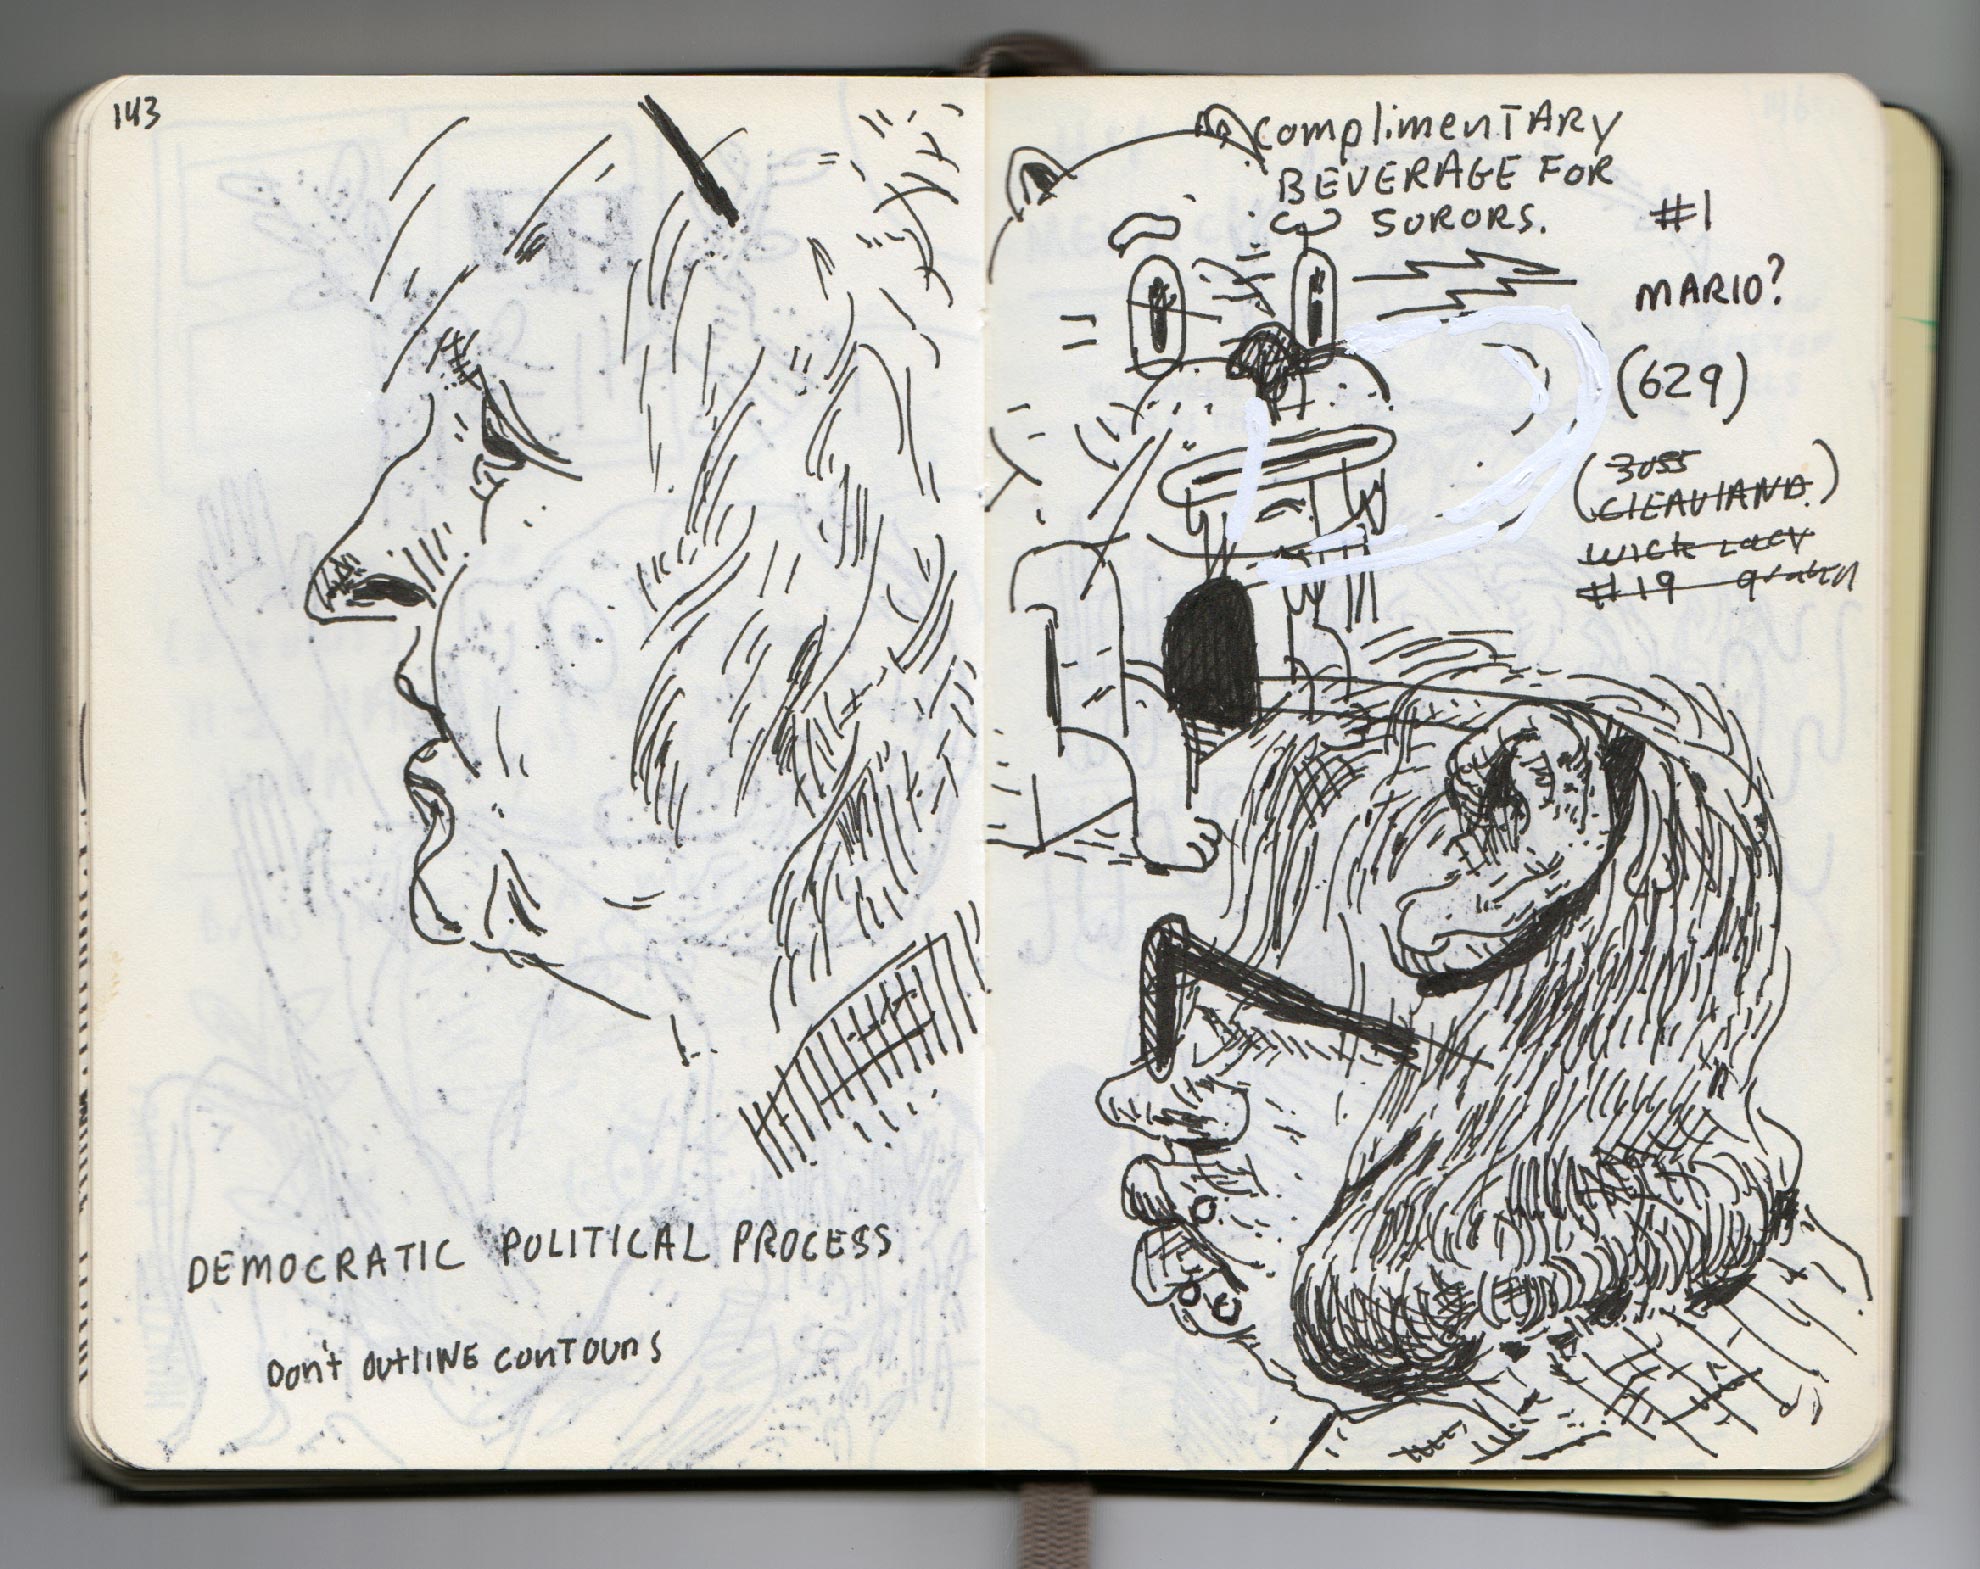 143
DEMOCRATIC POLITICAL PROCESS
Don't OUtLINE contours
complimentary
BEVERAGE FOR
SORORS.
#1
MARIO?
(629)
(3055
CLEAVLAND.)
#19